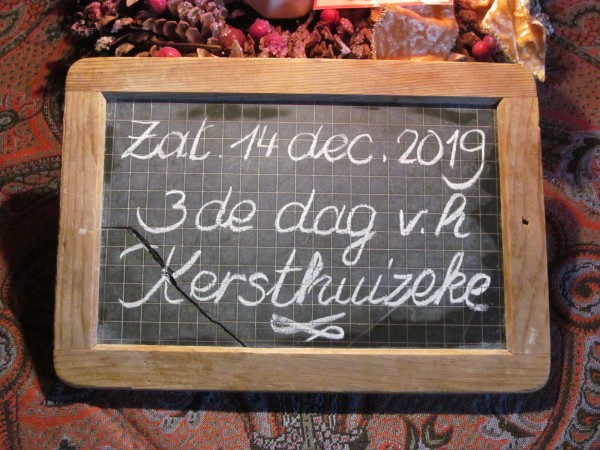 Zat. 14 dec. 2019
3de dag v.h
Kersthuizeke